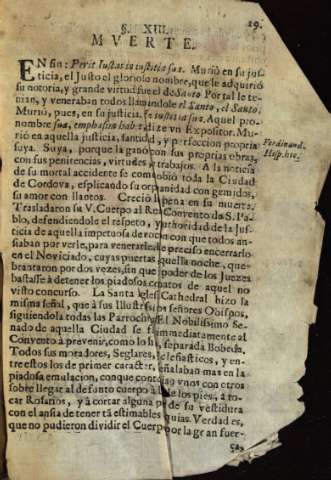 19.
§. XIII.
MVERTE.
EN fin: Perit Iustus in iustitia sua. Murió en su jus-
ticia, el Justo el glorioso nombre, que le adquirió
su notoria, y grande virtud fue el de Santo Por tal le te-
nian, y veneraban todos llamandole el Santo, el Santo.
Murió, pues, en su justicia. In iustitia sua. Aquel pro-
nombre sua, emphasim habet, dize vn Expositor. Mu-
rió en aquella justicia, santidad, y perfeccion propria
suya. Suya, porque la ganò con sus proprias obras,
con sus penitencias, virtudes, y trabajos. A la noticia
de su mortal accidente se comobiò toda la Ciudad
de Cordova, esplicando su orphanidad con gemidos,
su amor con llantos. Creciò la pena en su muerte.
Trasladaron su V. Cuerpo al Real Convento de S. Pa-
blo, defendiendole el respeto, y authoridad de la Jus-
ticia de aquella impetuosa de rocion con que todos an-
siaban por verle, para venerarle. Fue preciso encerrarlo
en el Noviciado, cuyas puertas aquella noche, que-
brantaron por dos vezes, sin que poder de los Juezes
bastasse à detener los piadosos conatos de aquel no
visto concurso. La Santa Iglesia Cathedral hizo la
misma señal, que à sus Illustrissimos señores Obispos,
siguiendola todas las Parrochias. El Nobilissimo Se-
nado de aquella Ciudad se fue immediatamente al
Convento à prevenir, como lo hizo, separada Bobeda.
Todos sus moradores, Seglares, Eclesiasticos, y en-
tre estos los de primer caracter, señalaban mas en la
piadosa emulacion, conque contendian vnos con otros
sobre llegar al defunto cuerpo à besarle los pies, à to-
car Rosarios, y à cortar alguna parte de su vestidura
con el ansia de tener tã estimables reliquias. Verdad es,
que no pudieron dividir el Cuerpo por la gran fuer-
Ferdinand.
Hisp. hic.